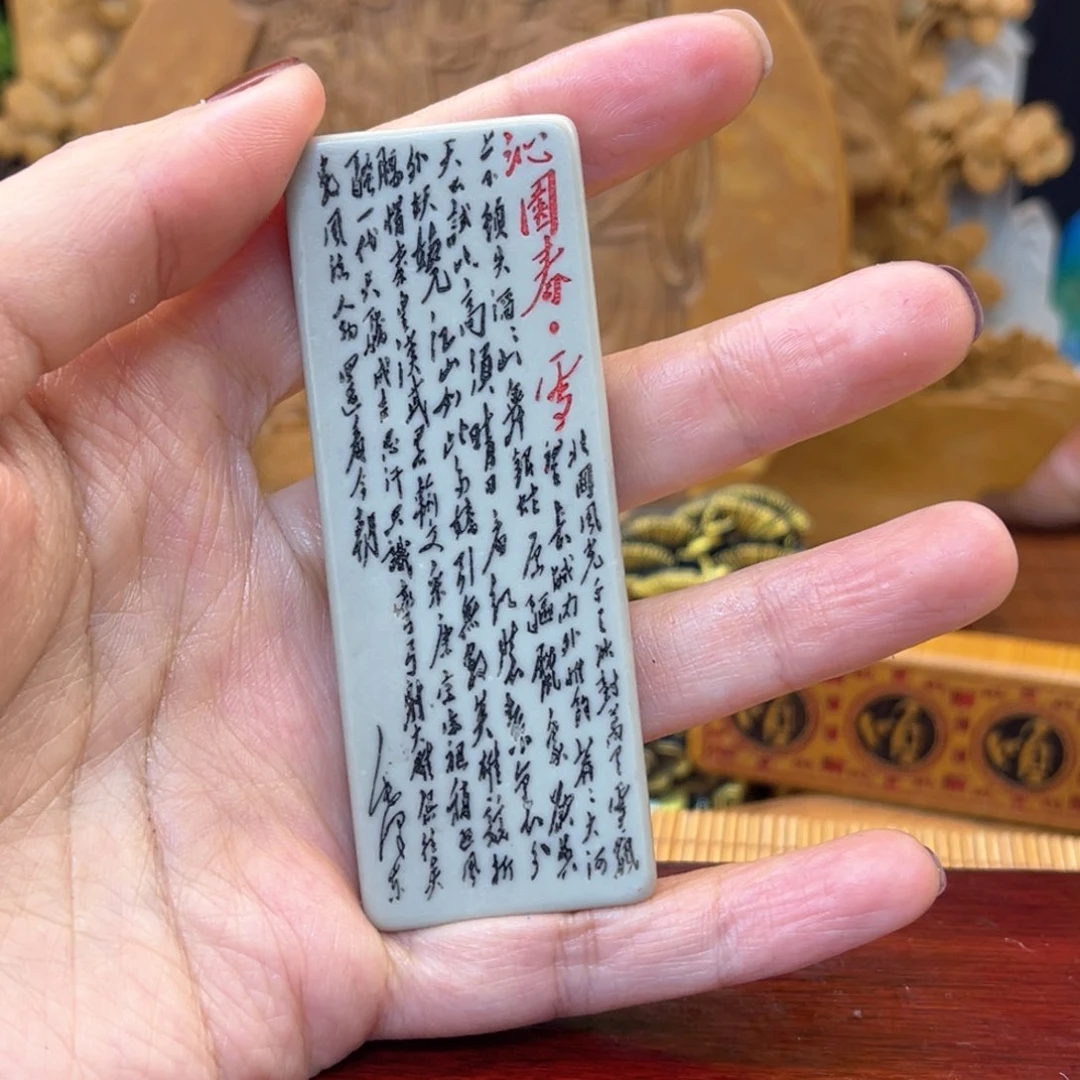 沁園春·雪
北國風光千里冰封萬里雪飄
望長城內外惟餘莽〻大河
上下頓失滔〻山舞銀蛇原驅臘象欲與
天公試比高須晴日看紅裝素裹分
外妖嬈江山如此多嬌引無數英雄競折
腰惜秦皇漢武略輸文采唐宗宋祖稍遜風
騷一代天驕成吉思汗只識彎弓射大雕俱往矣
數風流人物還看今朝
毛澤東